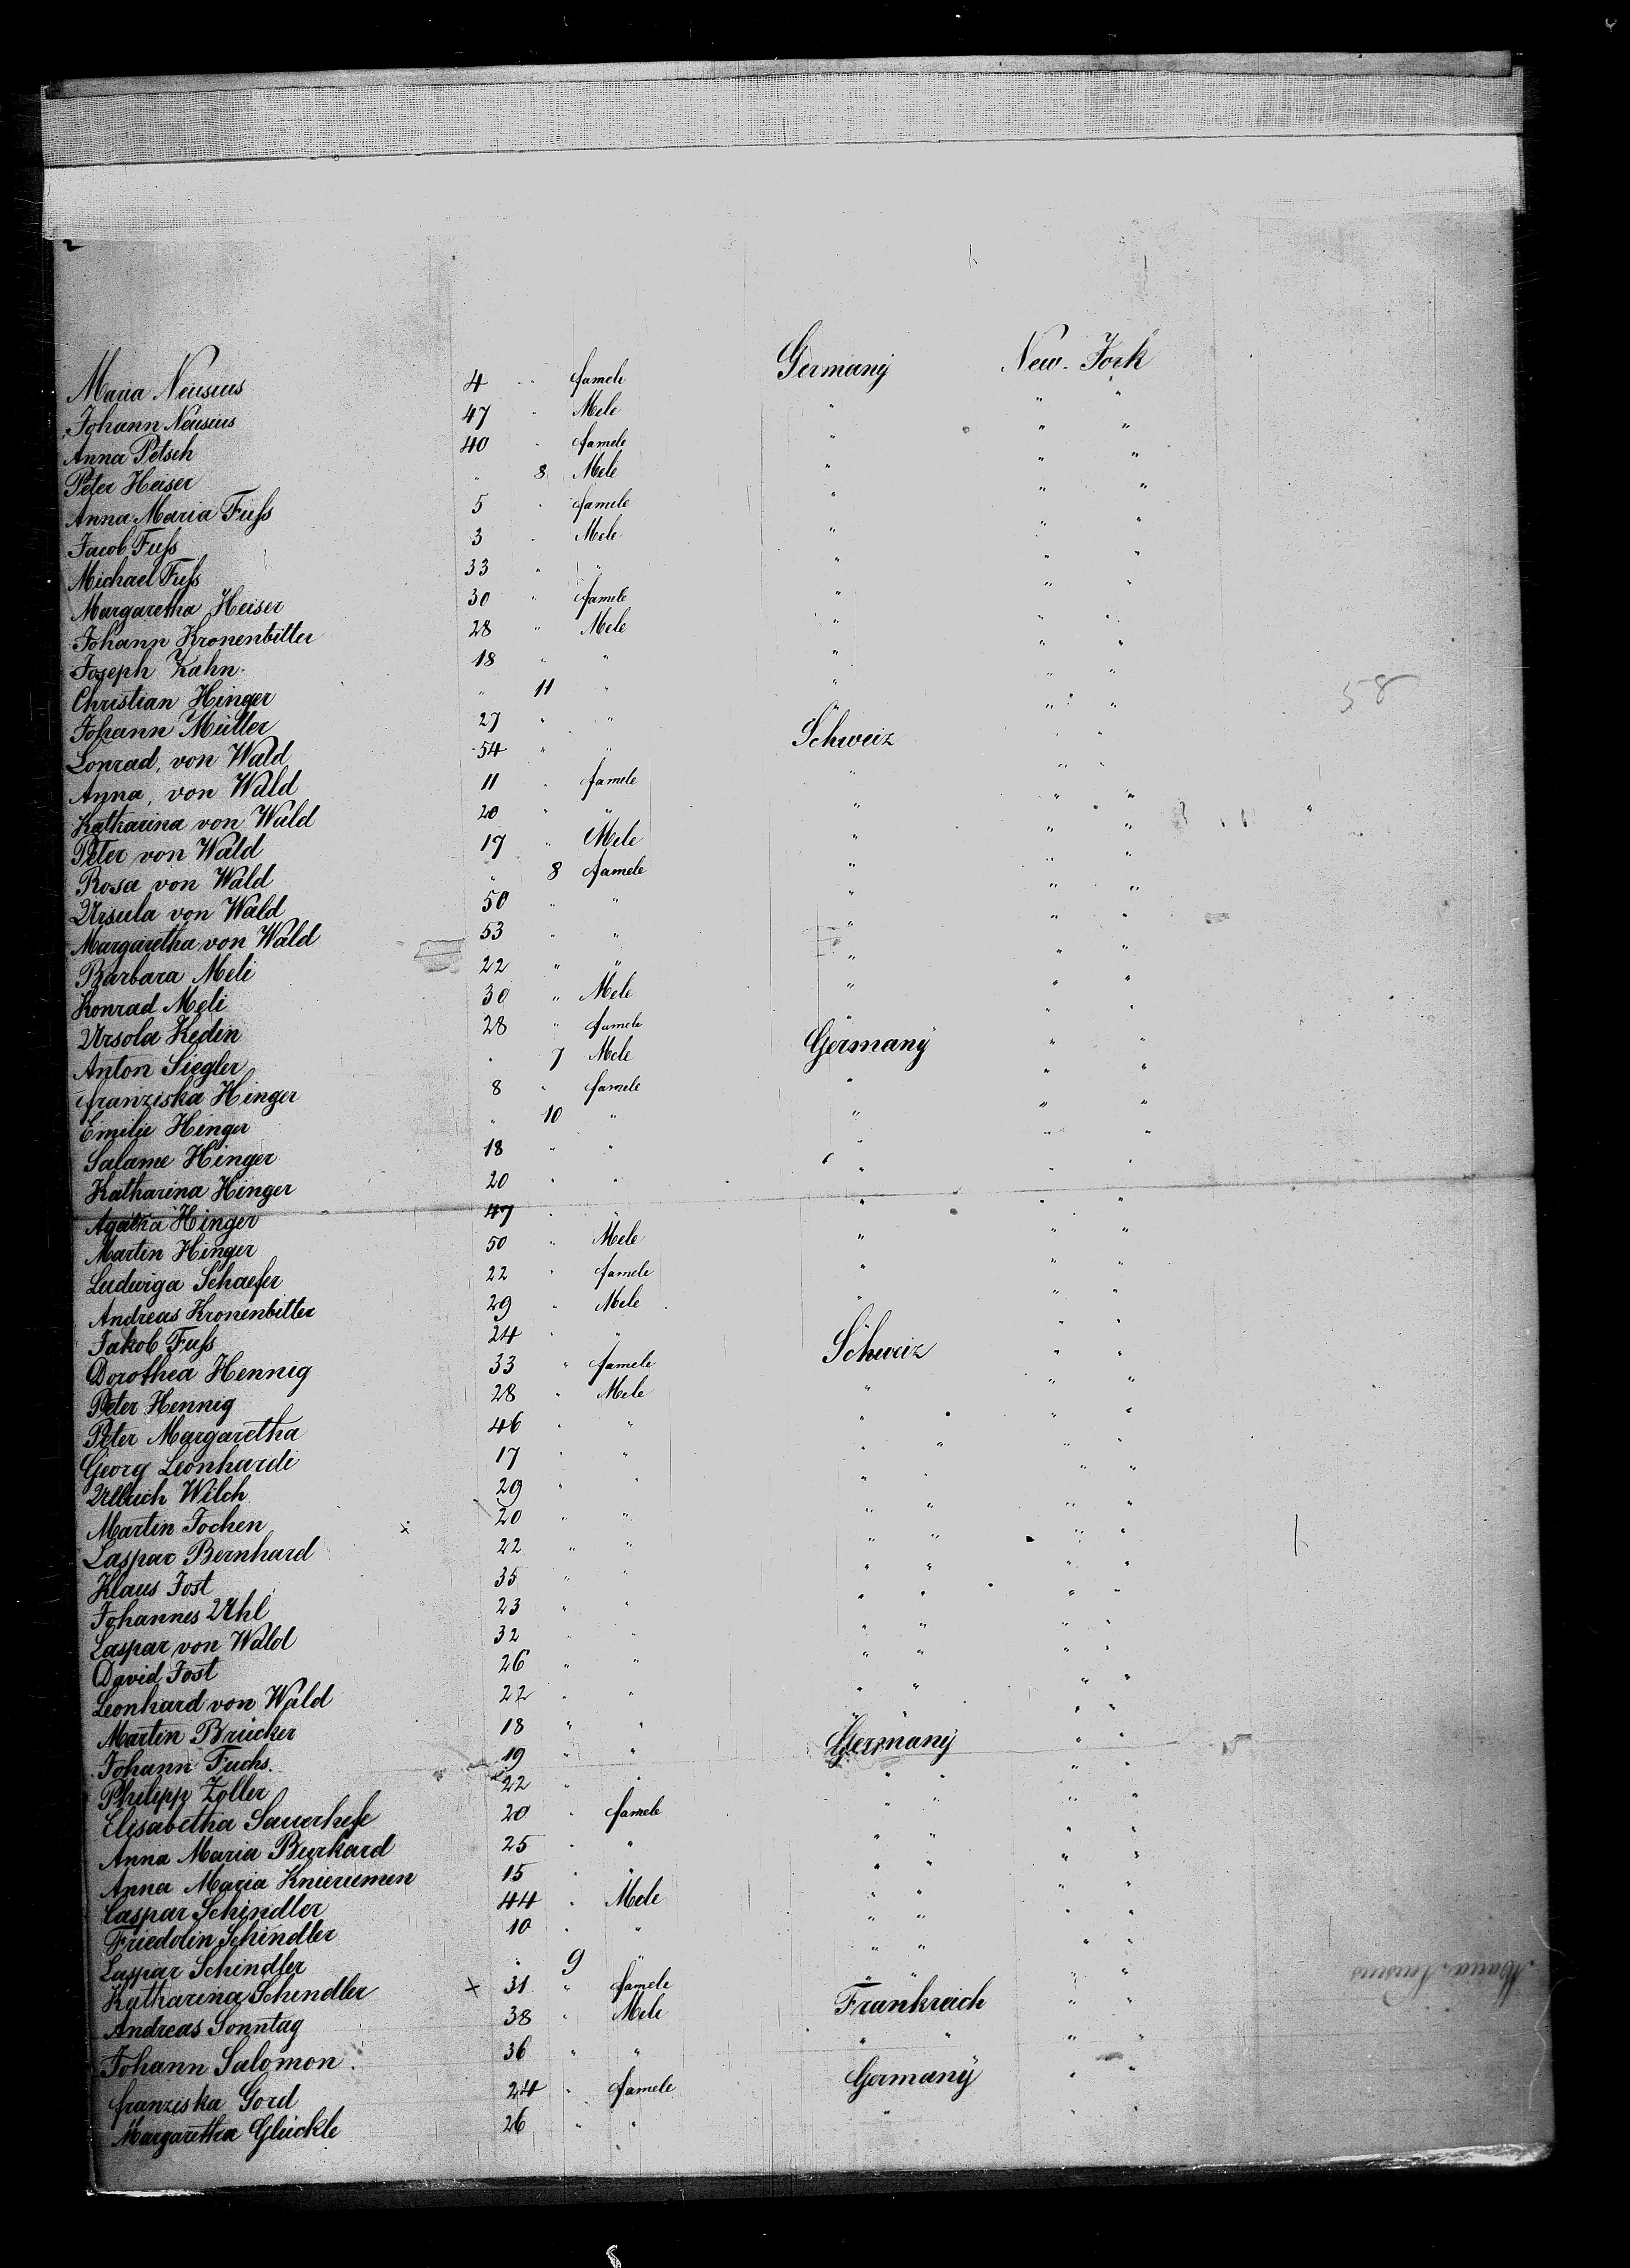 Maria Neusius 4 " famele Germany New-York
Johann Neusius 47 " Mele " " "
Anna Petsch 40 " famele " " "
Peter Heiser " 8 Mele " " "
Anna Maria Fuſs 5 " famele " " "
Jacob Fuſs 3 " Mele " " "
Michael Fuſs 33 " " " " "
Margaretha Heiser 30 " famele " " "
Johann Kronenbitter 28 " Mele " " "
Joseph Zahn 18 " " " " "
Christian Hinger " 11 " " " "
Johann Müller 27 " " " " " 58
Conrad, von Wald 54 " " Schweiz " "
Anna, von Wald 11 " famele " " "
Katharina von Wald 20 " " " " "
Peter von Wald 17 " Mele " " "
Rosa von Wald " 8 famele " " "
Ursula von Wald 50 " " " " "
Margaretha von Wald 53 " " " " "
Barbara Meli 22 " " " " "
Konrad Meli 30 " Mele " " "
Ursola Keden 28 " famele " " "
Anton Siegler " 7 Mele Germany " "
franziska Hinger 8 " famele " " "
Emilie Hinger " 10 " " " "
Salame Hinger 18 " " " " "
Katharina Hinger 20 " " " " "
Agatha Hinger 47 " " " " "
Martin Hinger 50 " Mele " " "
Ludwiga Schaefer 22 " famele " " "
Andreas Kronenbitter 29 " Mele " " "
Jakob Fuſs 24 " " " "
Dorothea Hennig 33 " famele Schweiz " "
Peter Hennig 28 " Mele " " "
Peter Margaretha 46 " " " " "
Georg Leonhardi 17 " " " " " "
Ulluch Wilch 29 " " " " " "
Martin Jochen 20 " " " " " "
Caspar Bernhard 22 " " " " " "
Klaus Jost 35 " " " " " "
Johannes Uhl 23 " " " " " "
Caspar von Wald 32 " " " " " "
David Jost 26 " " " " " "
Leonhard von Wald 22 " " " " " "
Martin Brücker 18 " " " " " "
Johann Fuchs. 19 " " Germany " "
Philipp Zoller 22 " " " " " "
Elisabetha Sauerhefe 20 " famele " " " "
Anna Maria Burkard 25 " " " " " "
Anna Maria Knieriemen 15 " " " " " "
Caspar Schindler 44 " Mele " " " "
Friedolin Schindler 10 " " " " " "
Caspar Schindler " 9 " " " " "
Katharina Schindler x 31 " famele " " " "
Andreas Sonntag 38 " Mele Frankreich " "
Johann Salomon 36 " " " " " "
franziska Gord 24 " famele Germany " "
Margaretha Glückle 26 " " " " "
Maria Neusius